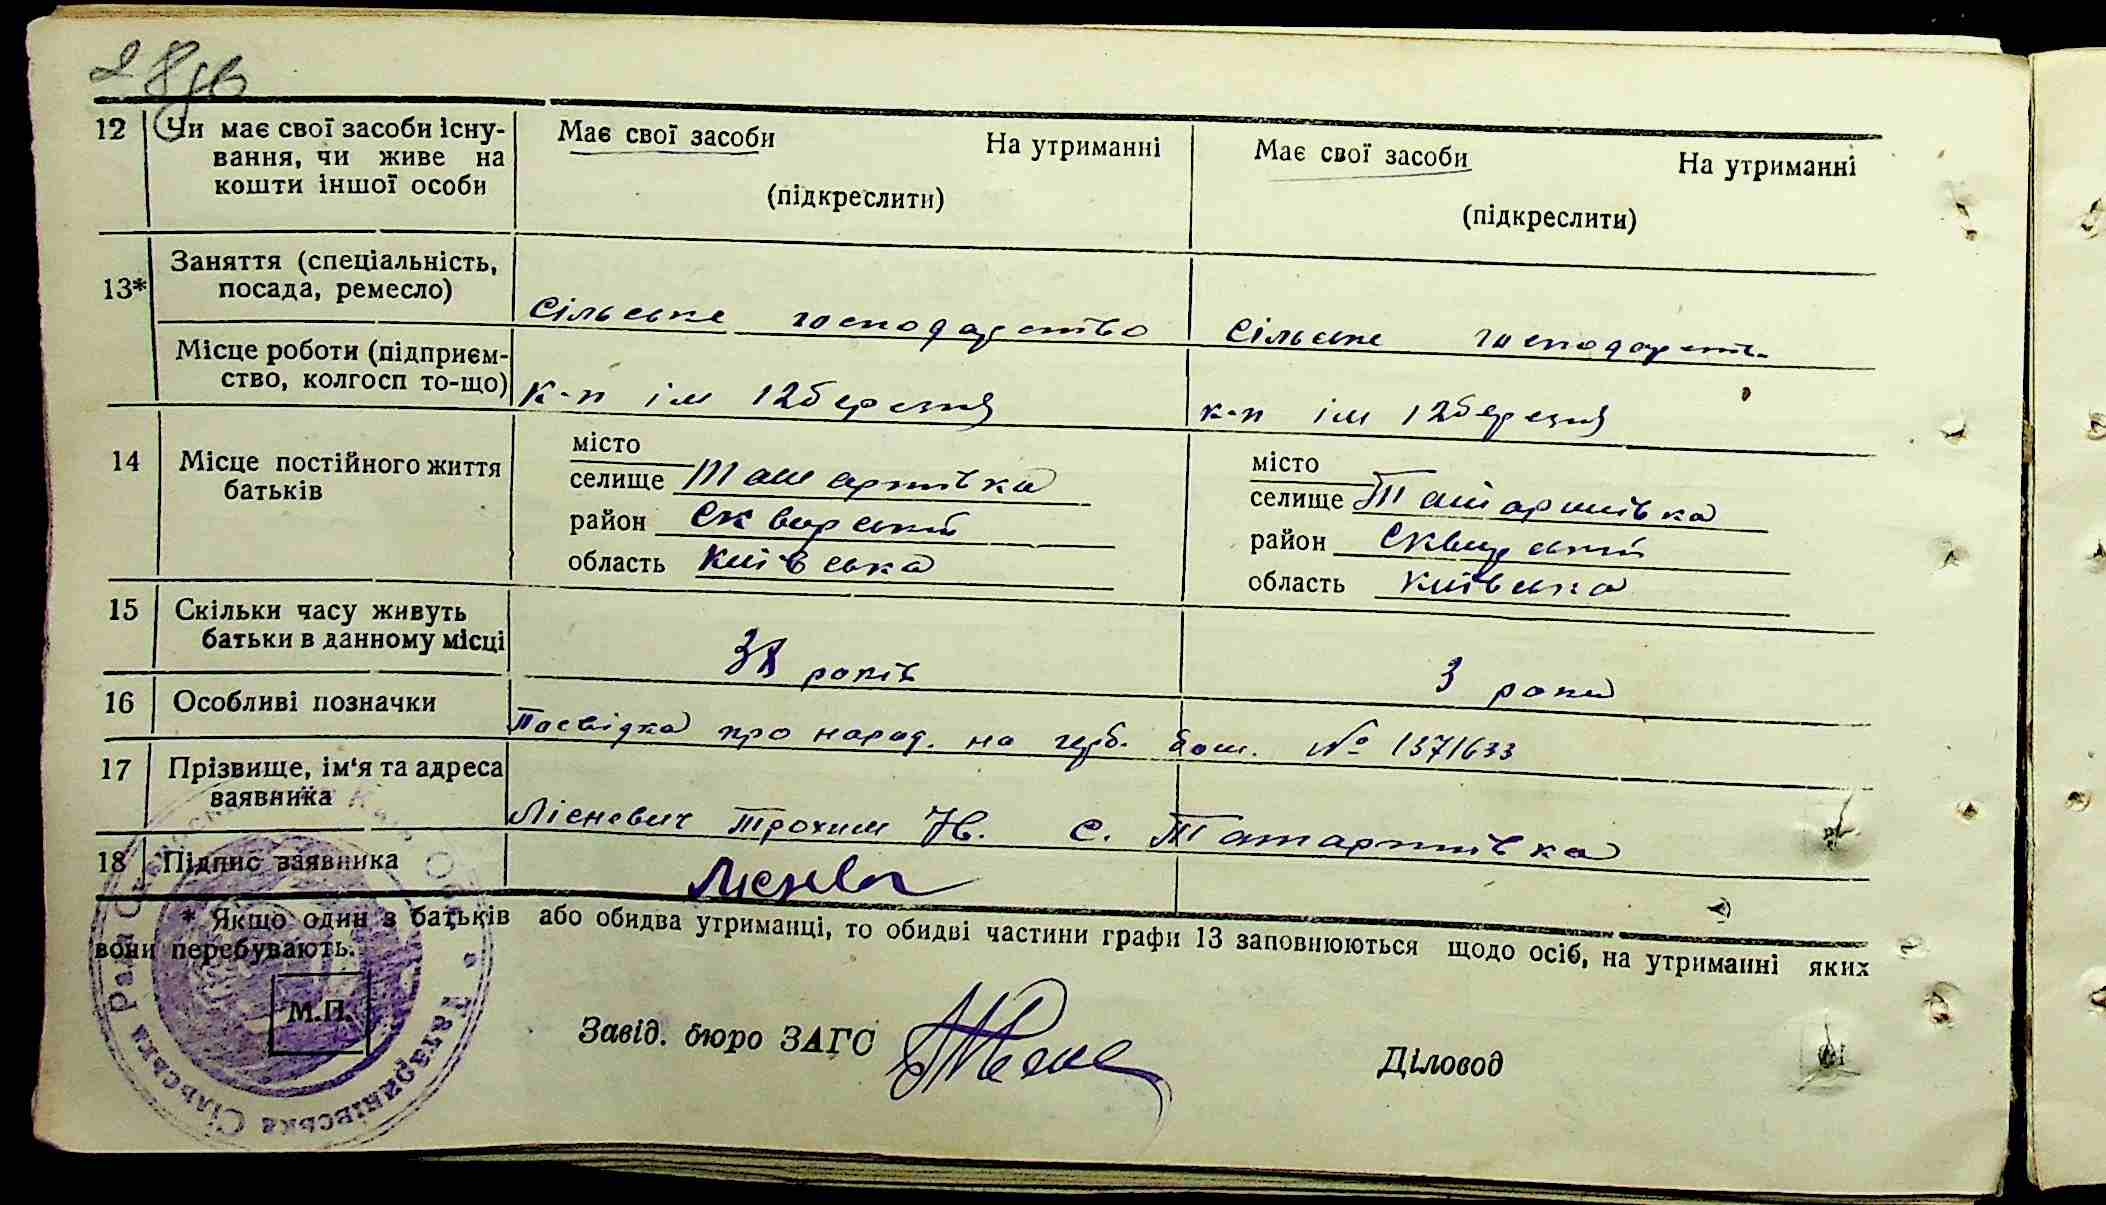 28 зв
12 Чи має свої засоби існу- Має свої засоби На утриманні Має свої засоби На утриманні
вання, чи живе на
кошти іншої особи (підкреслити) (підкреслити)
Заняття (спеціальність,
13* посада, ремесло) Сільське господарство Сільське господарст.
Місце роботи (підприєм-
ство, колгосп то-що) К-п ім 12 березня к-п ім 12 березня
14 Місце постійного життя місто місто
батьків селище Татаринівка селище Татаринівка
район Сквирський район Сквирський
область Київська область Київська
15 Скільки часу живуть
батьки в данному місці 38 років 3 роки
16 Особливі позначки Посвідка про народ. на герб. бом. № 1371633
17 Прізвище, ім'я та адреса
заявника Лісневич Трохим Ів. с. Татаринівка
18 Підпис заявника
* Якщо один з батьків або обидва утриманці, то обидві частини графи 13 заповнюються щодо осіб, на утриманні яких
вони перебувають.
М.П.
Завід. бюро ЗАГС Діловод
Татаринівська Сільська Рада